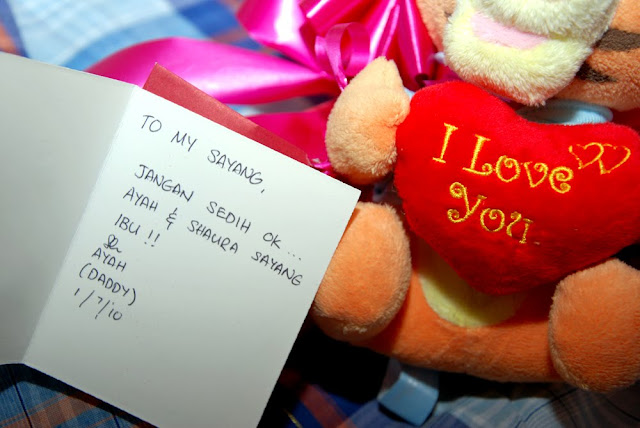 TO MY SAYANG,
JANGAN SEDIH OK...
AYAH & SHAURA SAYANG
IBU!!
AYAH
(DADDY)
1/7/10
I Love
You